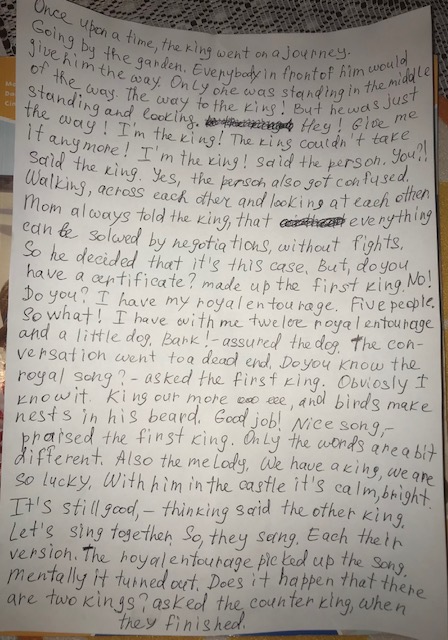 Once upon a time, the king went on a journey.
Going by the garden. Everybody in front of him would
give him the way. Only one was standing in the middle
of the way. The way to the King! But he was just
standing and looking. Hey! Give me
the way! I'm the king! The king couldn't take
it anymore! I'm the king! said the person. You?!
Said the king. Yes, the person also got confused.
Walking, across each other and looking at each other.
Mom always told the king, that everything
can be solwed by negotiations, without fights.
So he decided that it's this case. But, do you
have a certificate? made up the first king. No!
Do you? I have my royal entourage. Five people.
So what! I have with me twelve royal entourage
and a little dog. Bark! - assured the dog. The con-
versation went to a dead end. Do you know the
royal song? - asked the first king. Obviosly I
know it. King our more and birds make
nests in his beard. Good job! Nice song,-
praised the first king. Only the words are a bit
different. Also the melody. We have a king, we are
so lucky. With him in the castle it's calm, bright.
It's still good, - thinking said the other king.
Let's sing together. So, they sang. Each their
version. The royal entourage picked up the song.
mentally it turned out. Does it happen that there
are two kings? asked the counter king, when
they finished.